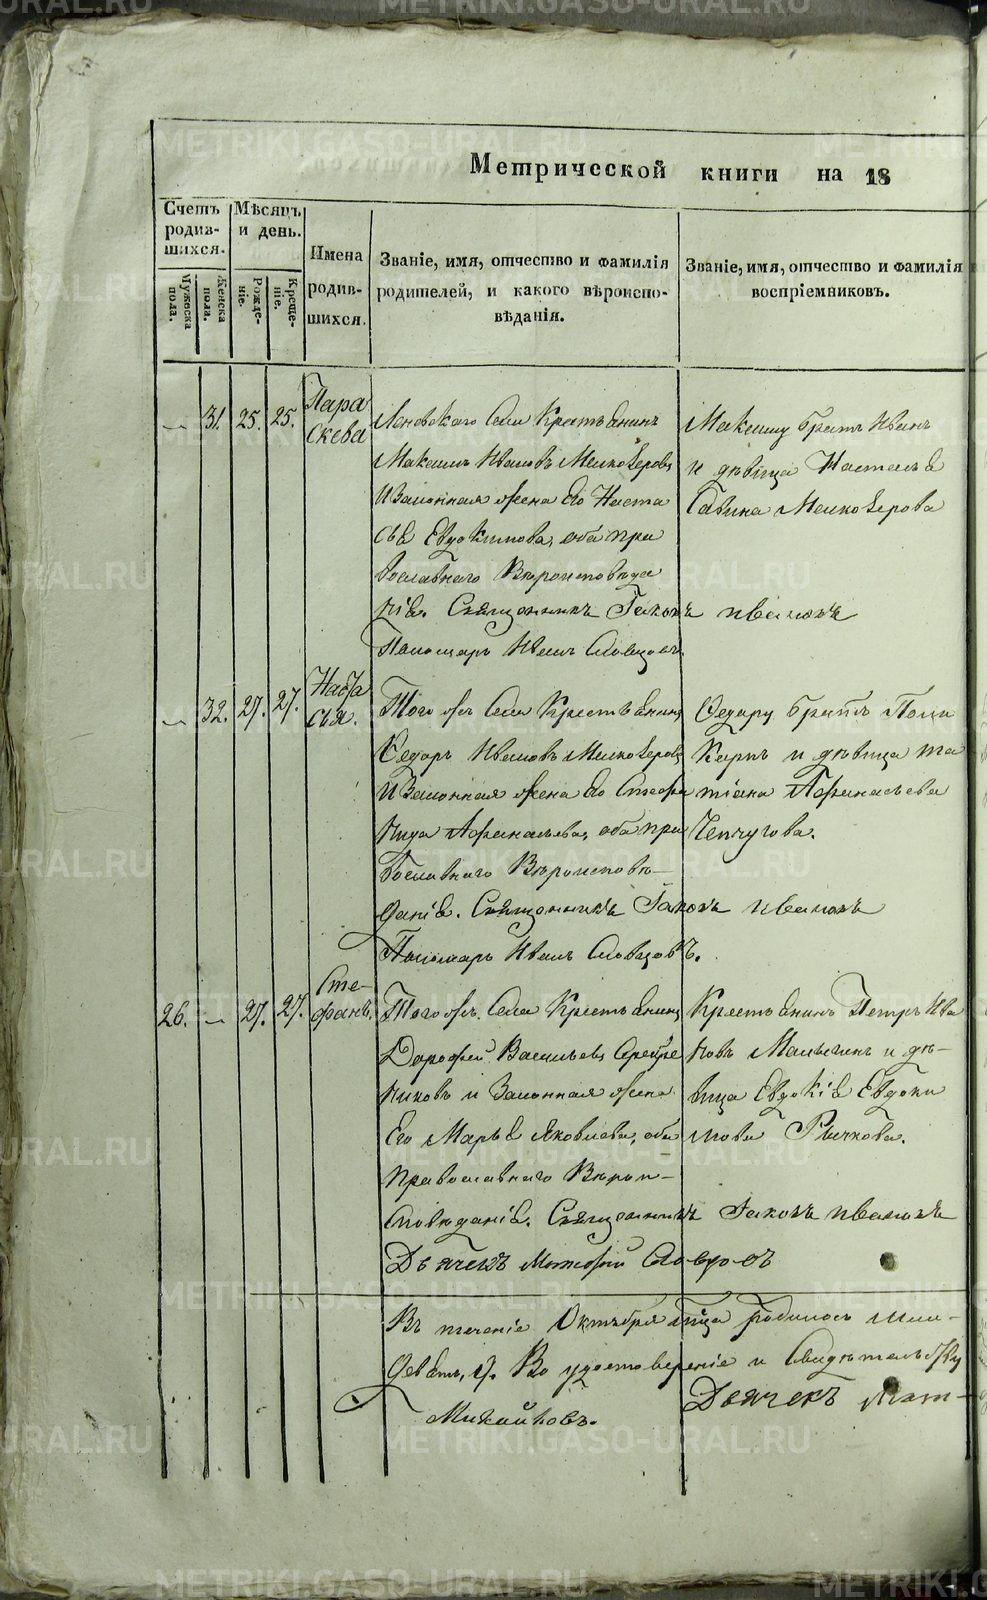 Метрической книги на 18
Счетъ родившихся.
Мужеска пола.
Женска пола.
Мѣсяцъ и день.
Рожденіе.
Крещеніе.
Имена родившихся.
Званіе, имя, отчество и фамилія родителей, и какого вѣроисповѣданія.
Званіе, имя, отчество и фамилія воспріемниковъ.
31. 25. 25. Пара
скева
Села Крестьянинъ
Максимъ Ивановъ Мелкозеровъ
И Законная Жена Его Наста
сья Евдокимова, оба пра
вославнаго Вѣроисповѣда
нія. Священникъ Іаковъ
Пономарь Иванъ Словцовъ.
Максиму братъ Иванъ
и дѣвица Настасья
Савина Мелкозерова
32. 27. 27. Наста
сья.
Того жъ Села Крестьянинъ
Ѳедоръ Ивановъ Мелкозеровъ
И Законная Жена Его Стефа
нида Афанасьева, оба пра
вославнаго Вѣроисповѣ-
данія. Священникъ Іаковъ
Пономарь Иванъ Словцовъ.
Ѳедору братъ Поли
карпъ и дѣвица Та
тіана Афанасьева
Чепчугова.
26. 27. 27. Сте-
фанъ.
Того жъ Села Крестьянинъ
Дорофей Васильевъ Серебре
никовъ и Законная Жена
Его Марья Яковлева, оба
православнаго Вѣрои-
сповѣданія. Священникъ Іаковъ
Дьячекъ
Крестьянинъ Петръ Ива
новъ Малыгинъ и дѣ-
вица Евдокія Евдоки
мова Рычкова.
Въ теченіе Октября мѣсяца родилось
Девять, 9. Во удостовѣреніе и Свидѣтельству
Дьячекъ